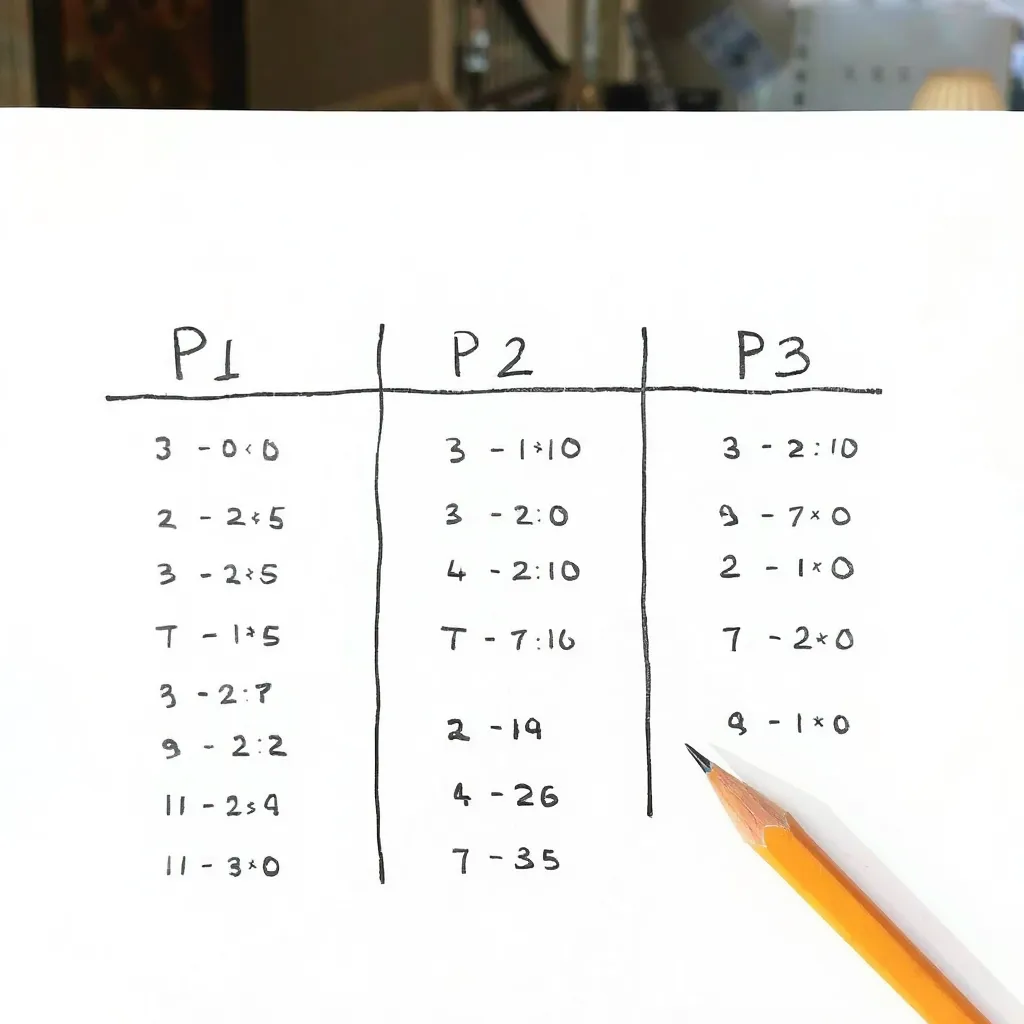 P1 P2 P3
3 - 0:0 3 - 1*10 3 - 2:10
2 - 2*5 3 - 2:0 9 - 7*0
3 - 2*5 4 - 2:10 2 - 1*0
T - 1*5 T - 7:10 7 - 2*0
3 - 2:7
9 - 2:2 2 - 19 9 - 1*0
11 - 2:9 4 - 26
11 - 3*0 7 - 35